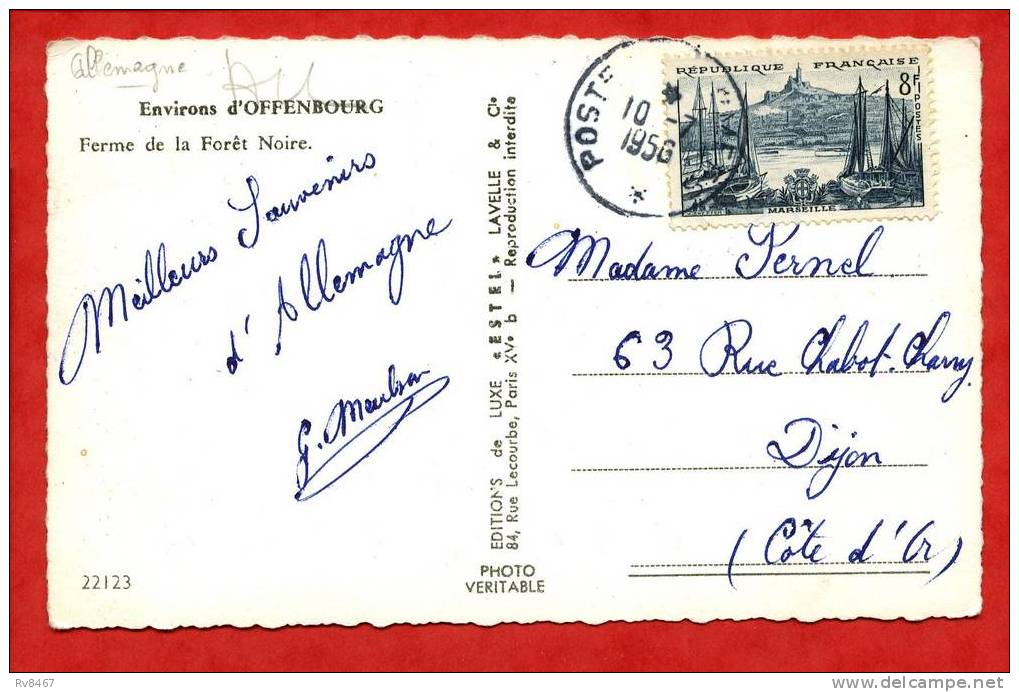 Allemagne
Environs d'OFFENBOURG
Ferme de la Forêt Noire.
Meilleurs Souvenirs
d'Allemagne
22123
EDITIONS de LUXE «ESTEL» LAVELLE & Cie
84, Rue Lecourbe, Paris XVe b — Reproduction interdite
PHOTO
VERITABLE
POSTE
10
1956
RÉPUBLIQUE FRANÇAISE
8F
POSTES
MARSEILLE
Madame Pernel
63 Rue Chabot-Charny
Dijon
(Côte d'Or)
Rv8467
www.delcampe.net